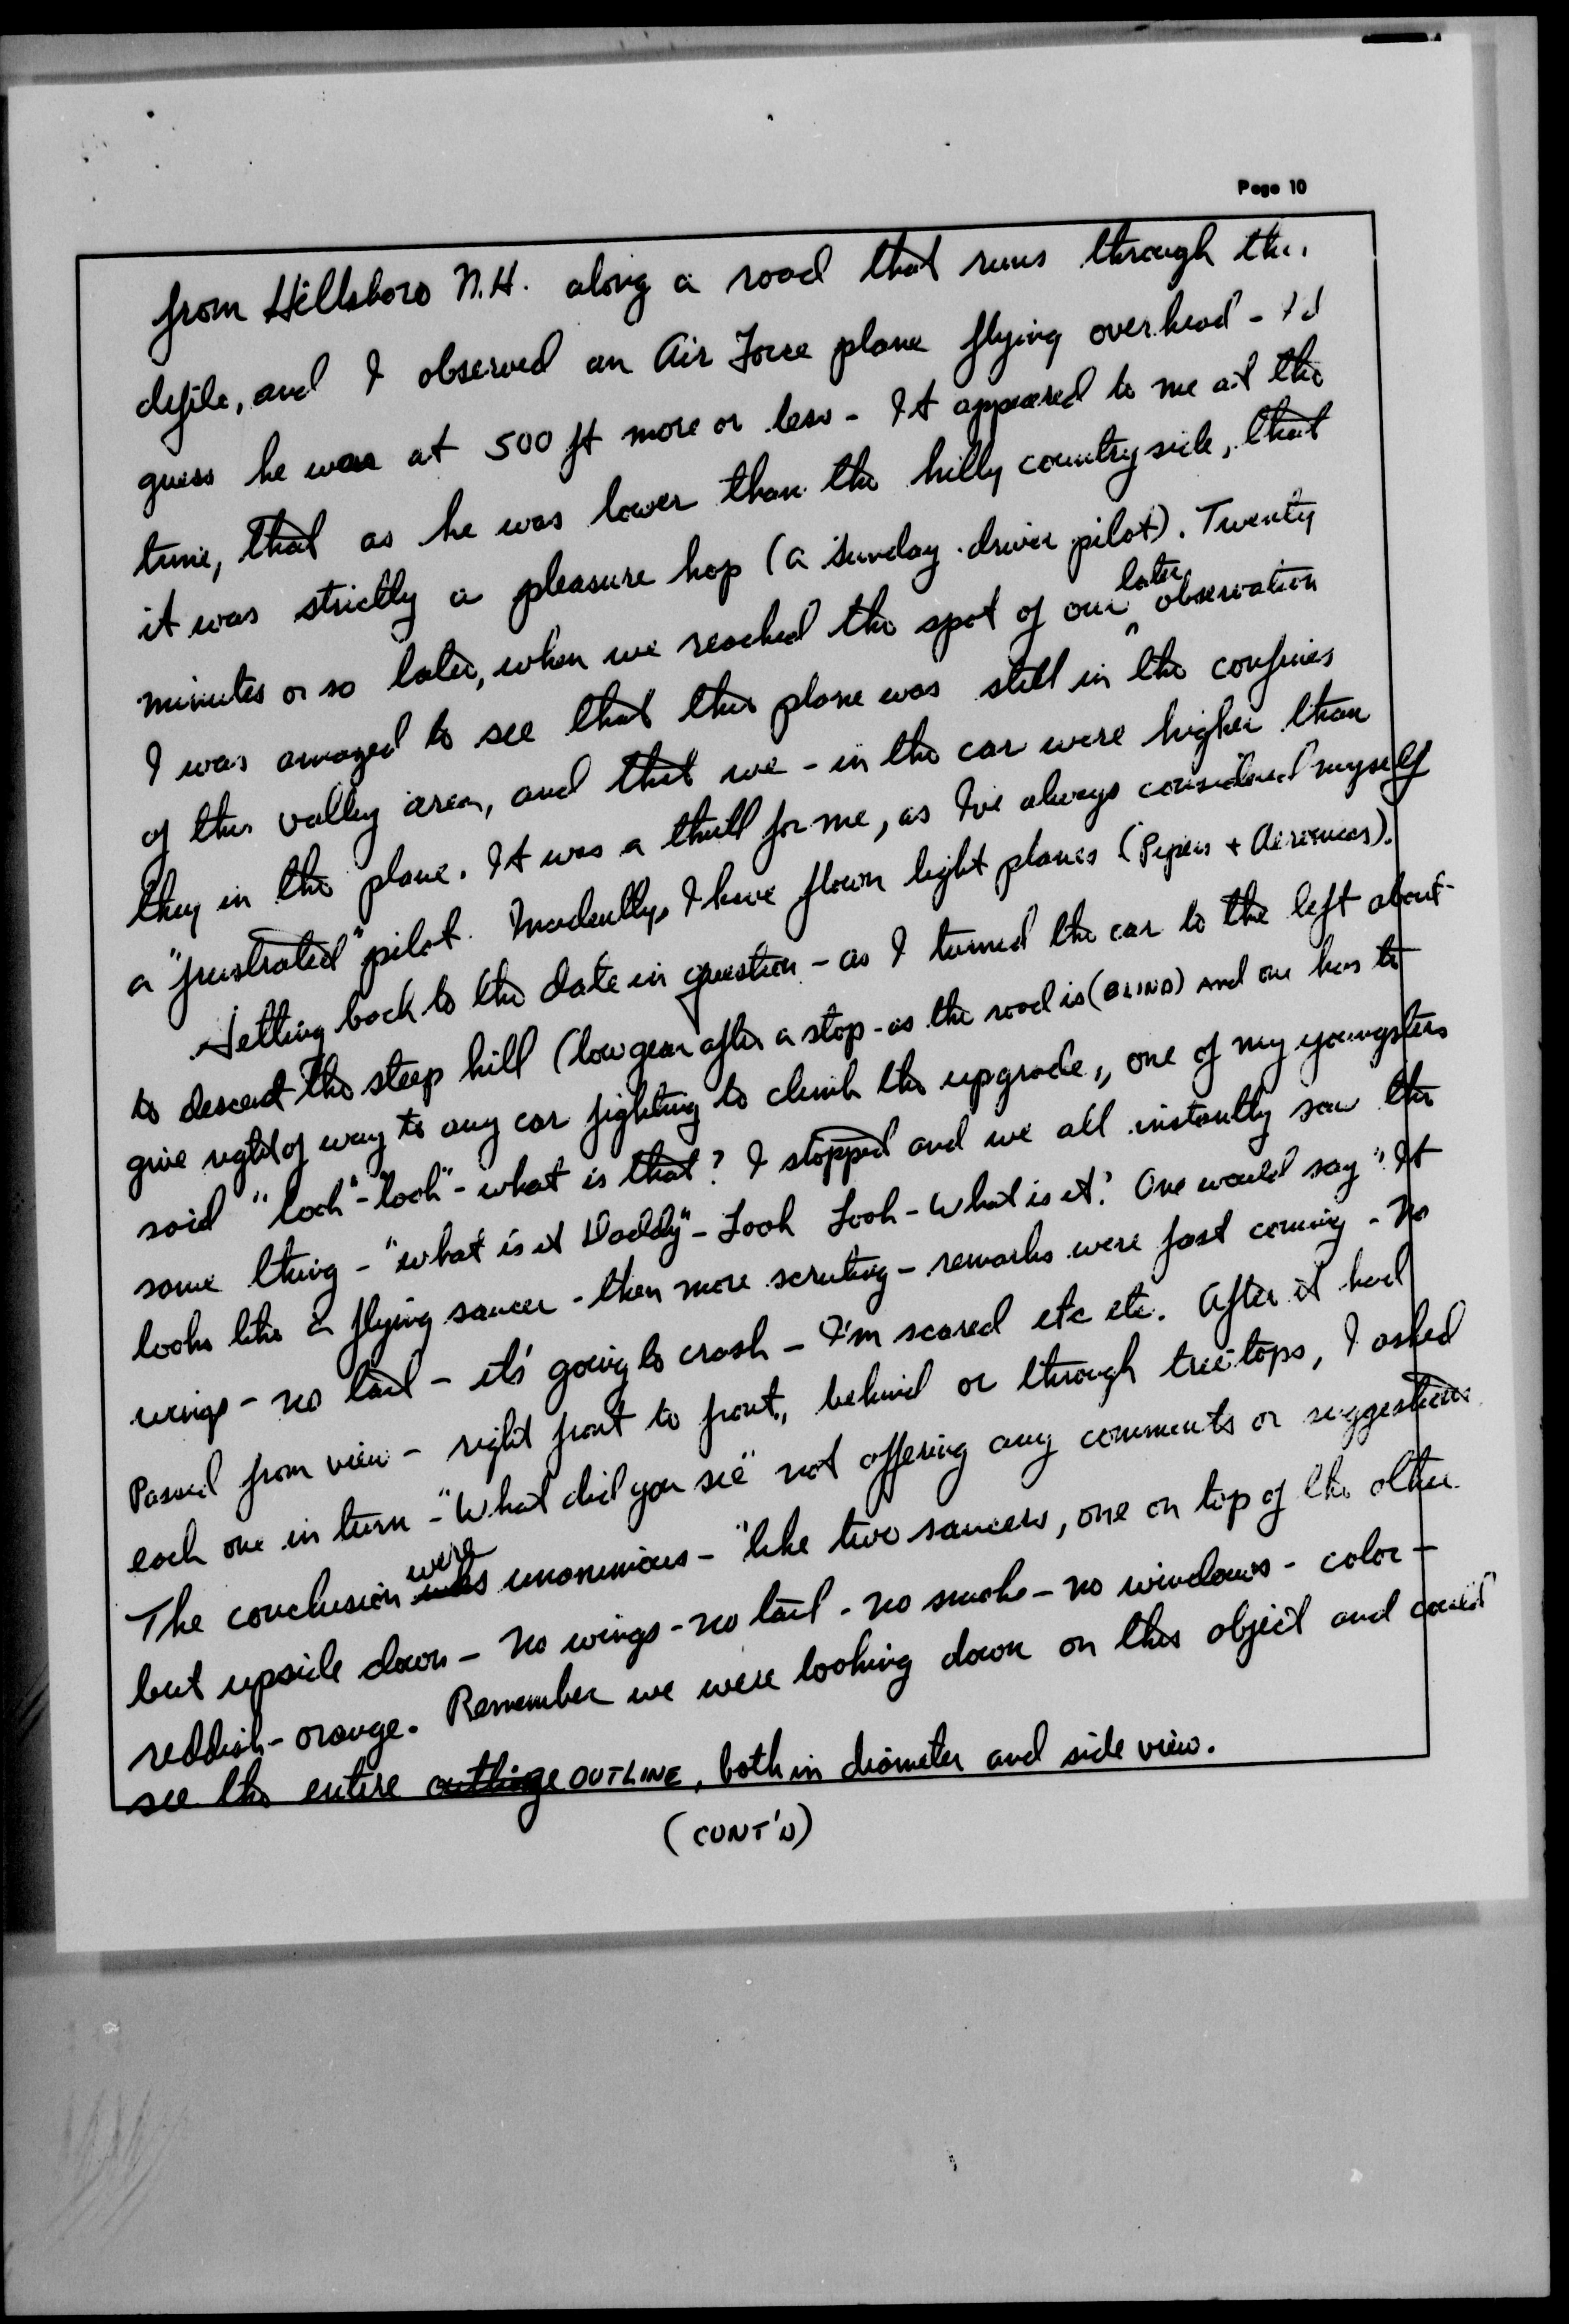 Page 10
from Hillsboro N.H. along a road that runs through the
defile, and I observed an Air Force plane flying overhead - I'd
guess he was at 500 ft more or less - It appeared to me at the
time, that as he was lower than the hilly countryside, that
it was strictly a pleasure hop (a Sunday driver pilot). Twenty
later
minutes or so later, when we reached the spot of our observation
I was amazed to see that this plane was still in the confines
of this valley area, and that we - in the car were higher than
they in the plane. It was a thrill for me, as I've always considered myself
a "frustrated" pilot. Incidentally, I have flown light planes (Pipers + Aeroncas).
Getting back to the date in question - as I turned the car to the left about
to descend the steep hill (low gear after a stop - as the road is (BLIND) and one has to
give right of way to any car fighting to climb the upgrade, one of my youngsters
said "look" - "look" - what is that? I stopped and we all instantly saw the
same thing - "what is it Daddy" - Look Look - What is it? One would say "It
looks like a flying saucer - then more scrutiny - remarks were fast coming - no
wings - no tail - it's going to crash - I'm scared etc etc. After it had
Passed from view - right front to front, behind or through treetops, I asked
each one in turn - "What did you see" not offering any comments or suggestions
were
The conclusion was unonimious - "like two saucers, one on top of the other
but upside down - no wings - no tail - no smoke - no windows - color -
reddish - orange. Remember we were looking down on this object and could
see the entire OUTLINE, both in diameter and side view.
(CONT'D)